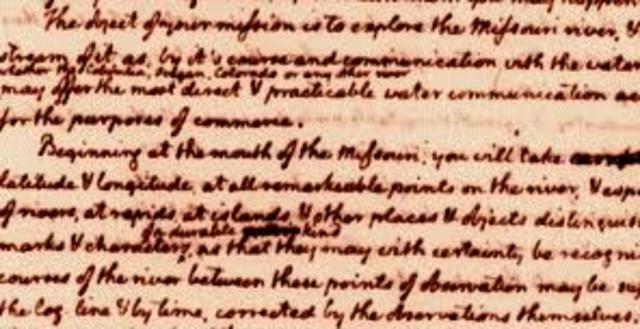 The object of your mission is to explore the Missouri river, &
stream of it as, by it's course and communication with the water
whether the Columbia, Oregan, Colorado or any other river
may offer the most direct & practicable water communication
for the purposes of commerce.
Beginning at the mouth of the Missouri, you will take
latitude & longitude, at all remarkeable points on the river, & esp
of rivers, at rapids, at islands, & other places & objects distingui
of a durable kind
marks & characters, as that they may with certainty be recogni
courses of the river between these points of observation may be su
the log-line & by time, corrected by the observations themselves.